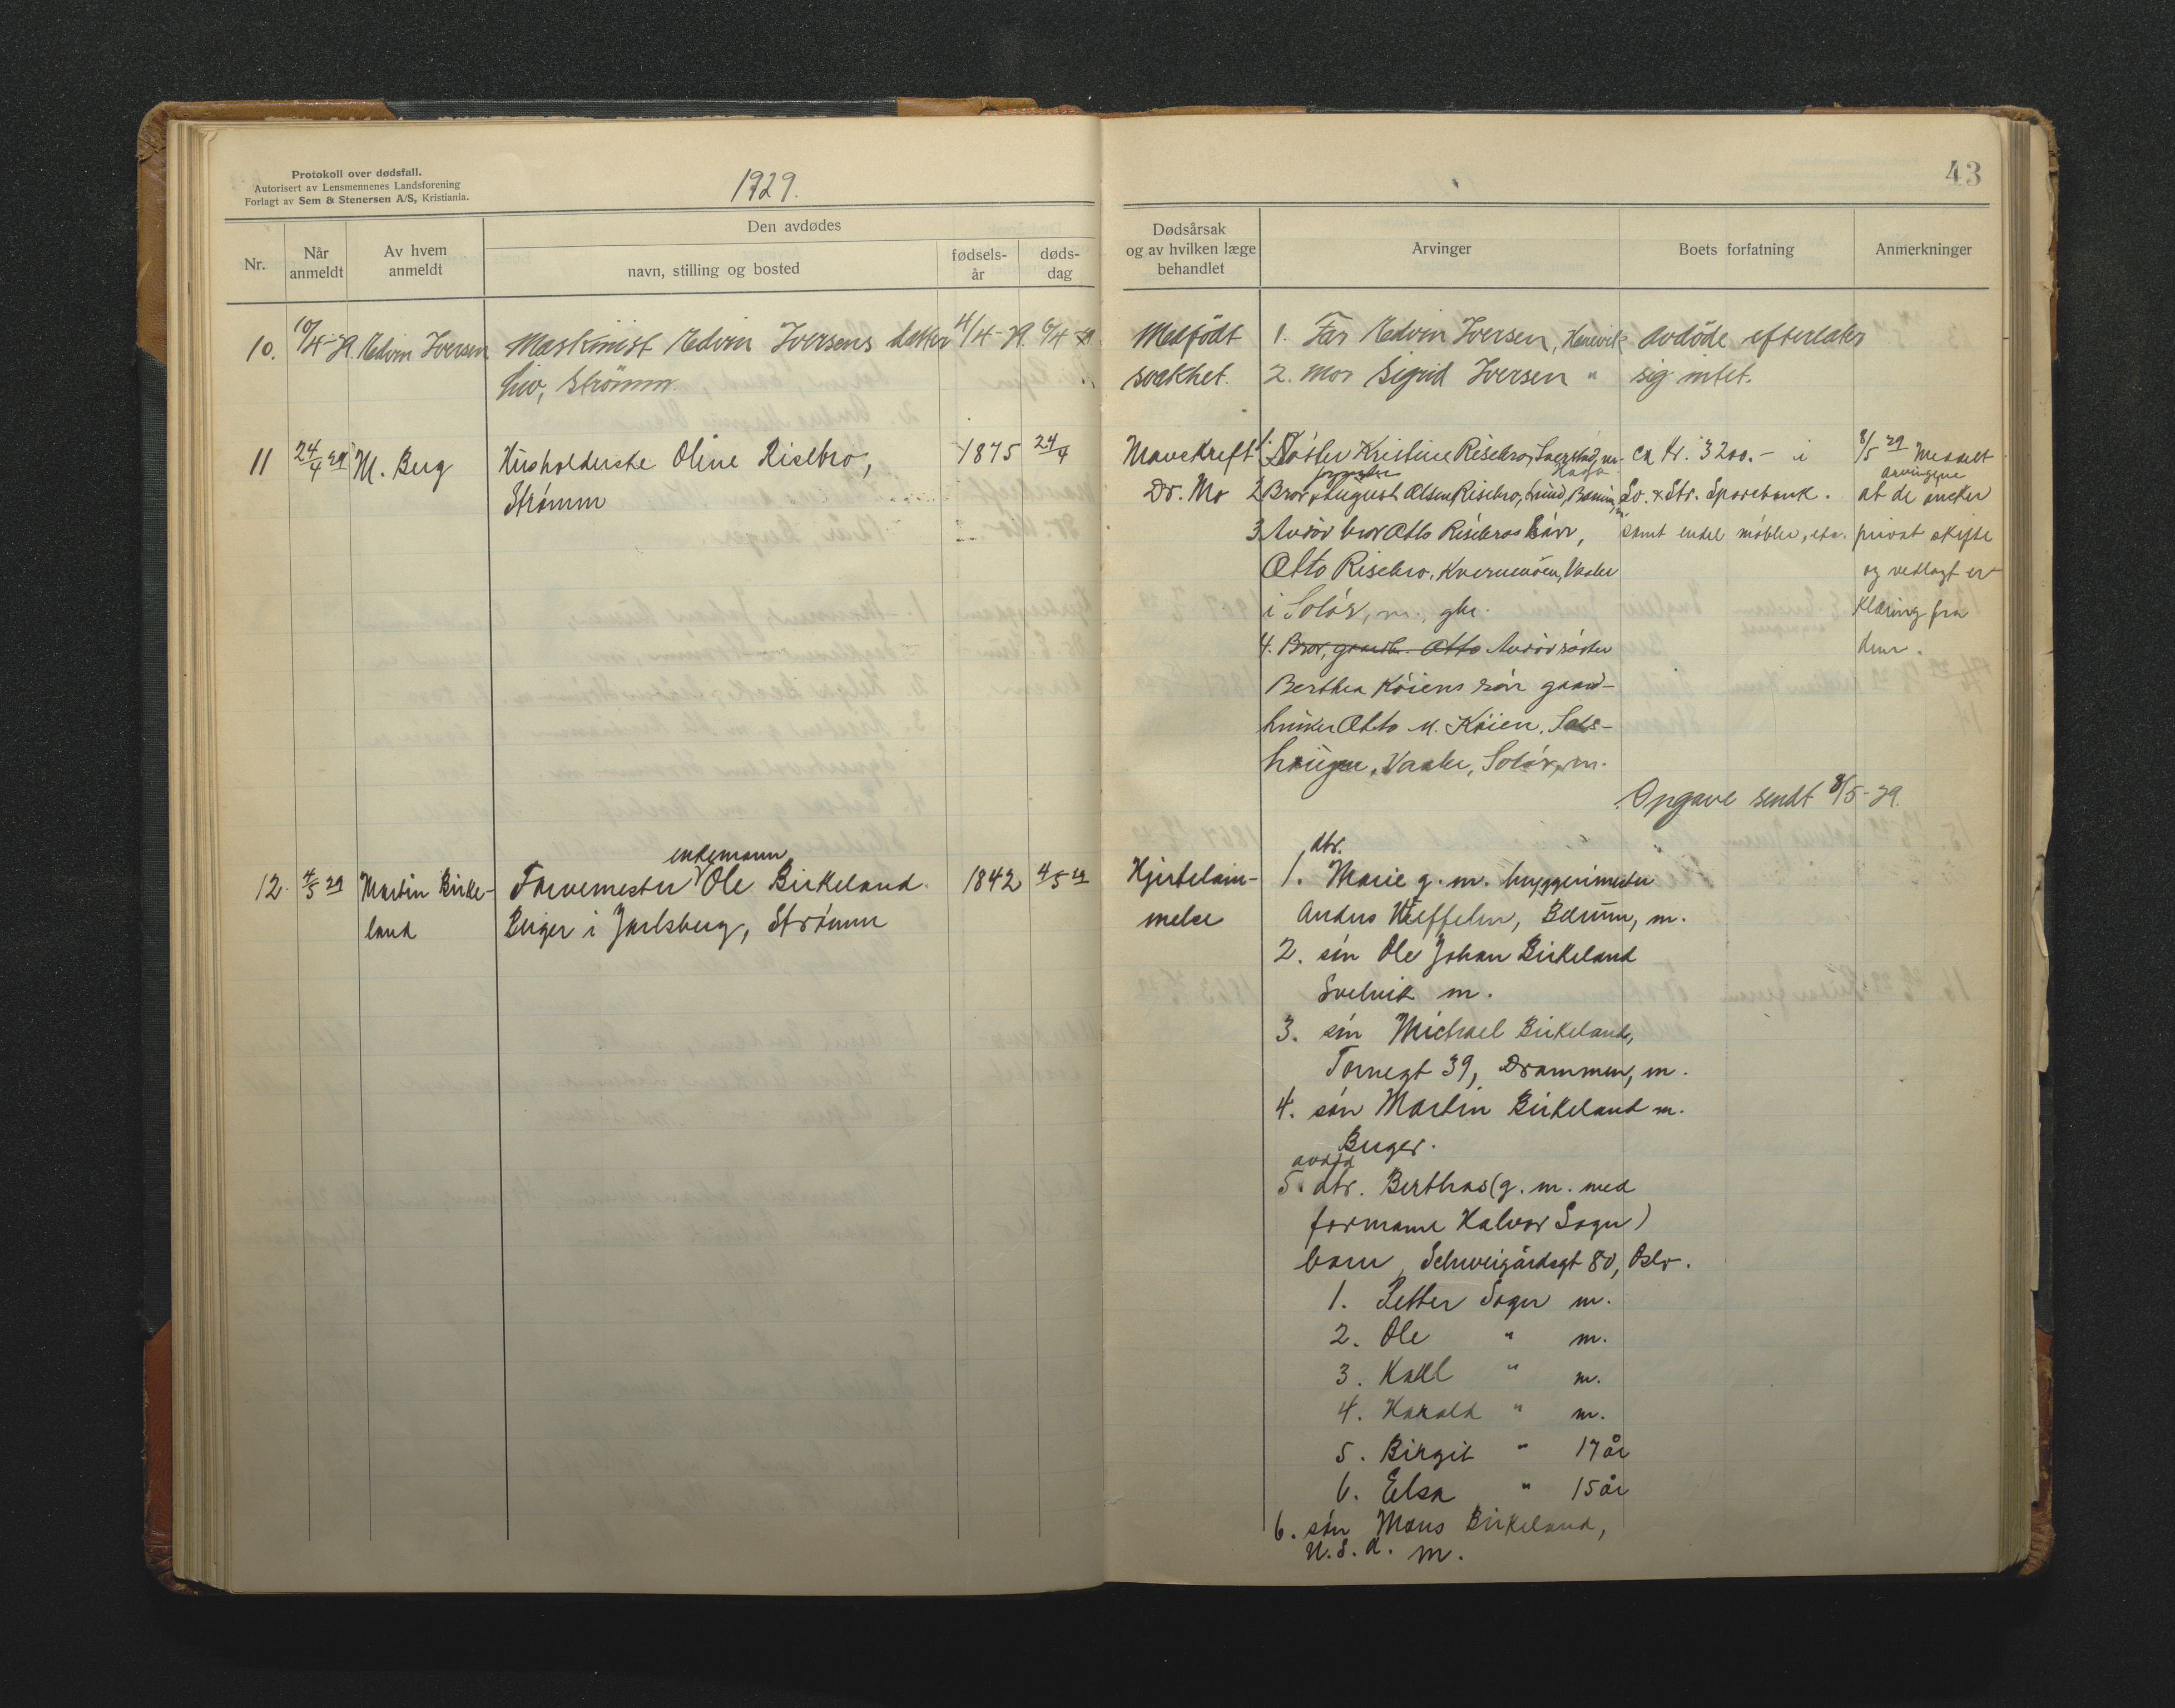 Protokoll over dødsfall.
Autorisert av Lensmennenes Landsforening
Forlagt av Sem & Stenersen A/S, Kristiania.
1929.
43
Nr.
Når anmeldt
Av hvem anmeldt
Den avdødes
navn, stilling og bosted
fødsels-år
døds-dag
Dødsårsak og av hvilken læge behandlet
Arvinger
Boets forfatning
Anmerkninger
10. 10/4-29. Edvin Iversen Maskinist Edvin Iversens datter 4/4-29. 6/4 29
Liv, Strömm.
Medfödt
svakhet.
1. Far Edvin Iversen,
2. Mor Sigrid Iversen "
Avdöde efterlater
sig intet.
11 24/4 29 M. Berg Husholderske Oline Risebro, 1875 24/4
Strømm
Mavekreft
Dr. Mo
1. Søster Kristine Risebro, m.
2. Bror August Olsen Risebro,
3. Avdöd bror Otto Risebros sönn,
Otto Risebro, Vaaler
i Solör, m., gbr.
4. Bror, gaardbr. Otto Avdöd söster
Berthea Köiens sön gaard-
bruker Otto M. Köien,
Vaaler, Solör, m.
ca kr. 3200.- i
Sv. & Str. Sparebank.
samt endel møbler, etc.
8/5 29 Meddelt
arvingene
at de ønsker
privat skifte
og vedlagt er-
klæring fra
dem.
Opgave sendt 8/5-29.
12. 4/5 29 Martin Birke-
land
enkemann
Farvemester Ole Birkeland. 1842 4/5 29
Berger i Jarlsberg, Strømm
Hjertelam-
melse
dtr.
1. Marie g. m. bryggerimester
Anders Bærum, m.
2. sön Ole Johan Birkeland
Svelvik m.
3. sön Michael Birkeland,
Tornegt 39, Drammen, m.
4. sön Martin Birkeland m.
Berger.
avdød
5. dtr. Berthas (g. m. med
formann Halvor Sogn)
barn, Schweigårdsgt 80, Oslo.
1. Petter Sogn m.
2. Ole " m.
3. Karl " m.
4. Harald " m.
5. Birgit " 17 år
6. Elsa " 15 år
6. sön Mons Birkeland,
U.S.A. m.